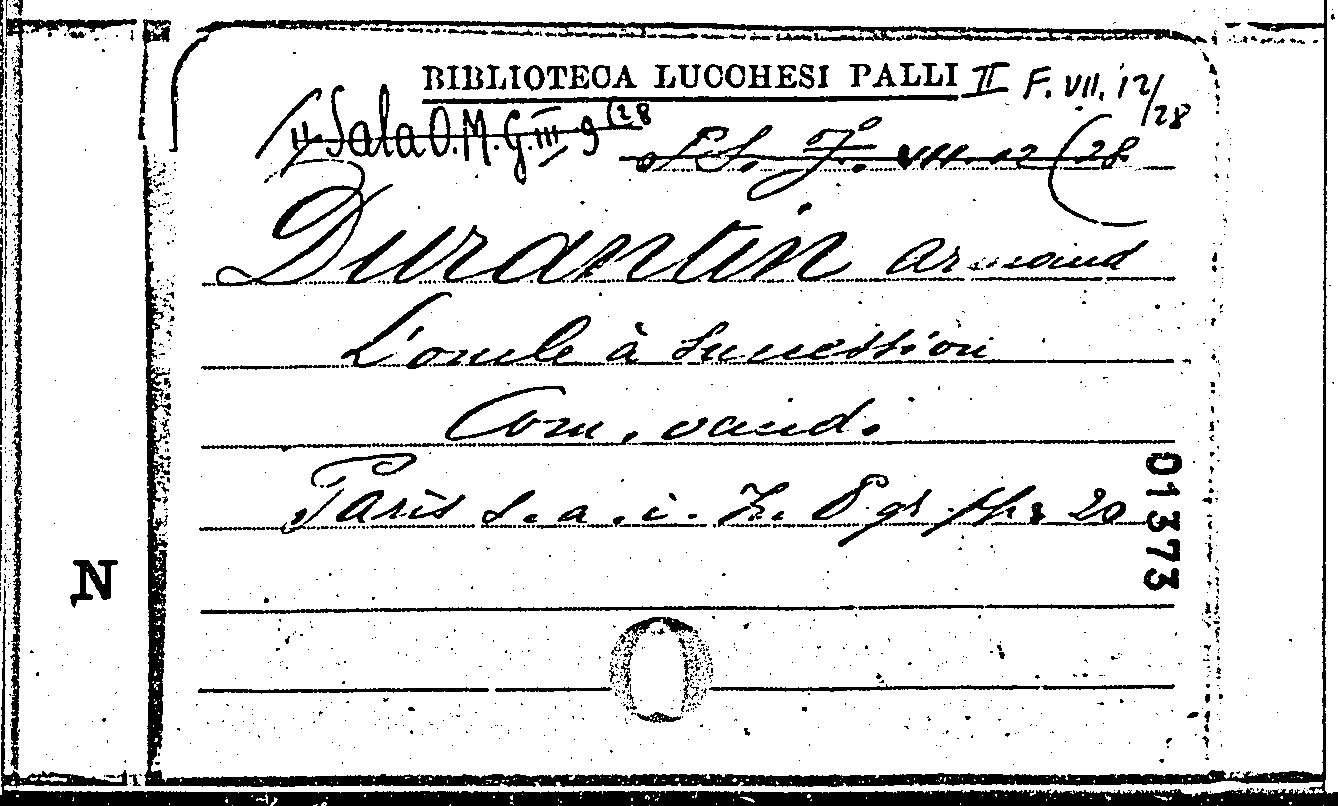 BIBLIOTECA LUCCHESI PALLI II F. VII. 12/28
4 Sala O.M.G. III 9 (28
VII. 12 (28
Durantin Armand
L'oncle à succession
Com. vaud.
Paris s. a. i. 8° gr. pp. 20
01373
N